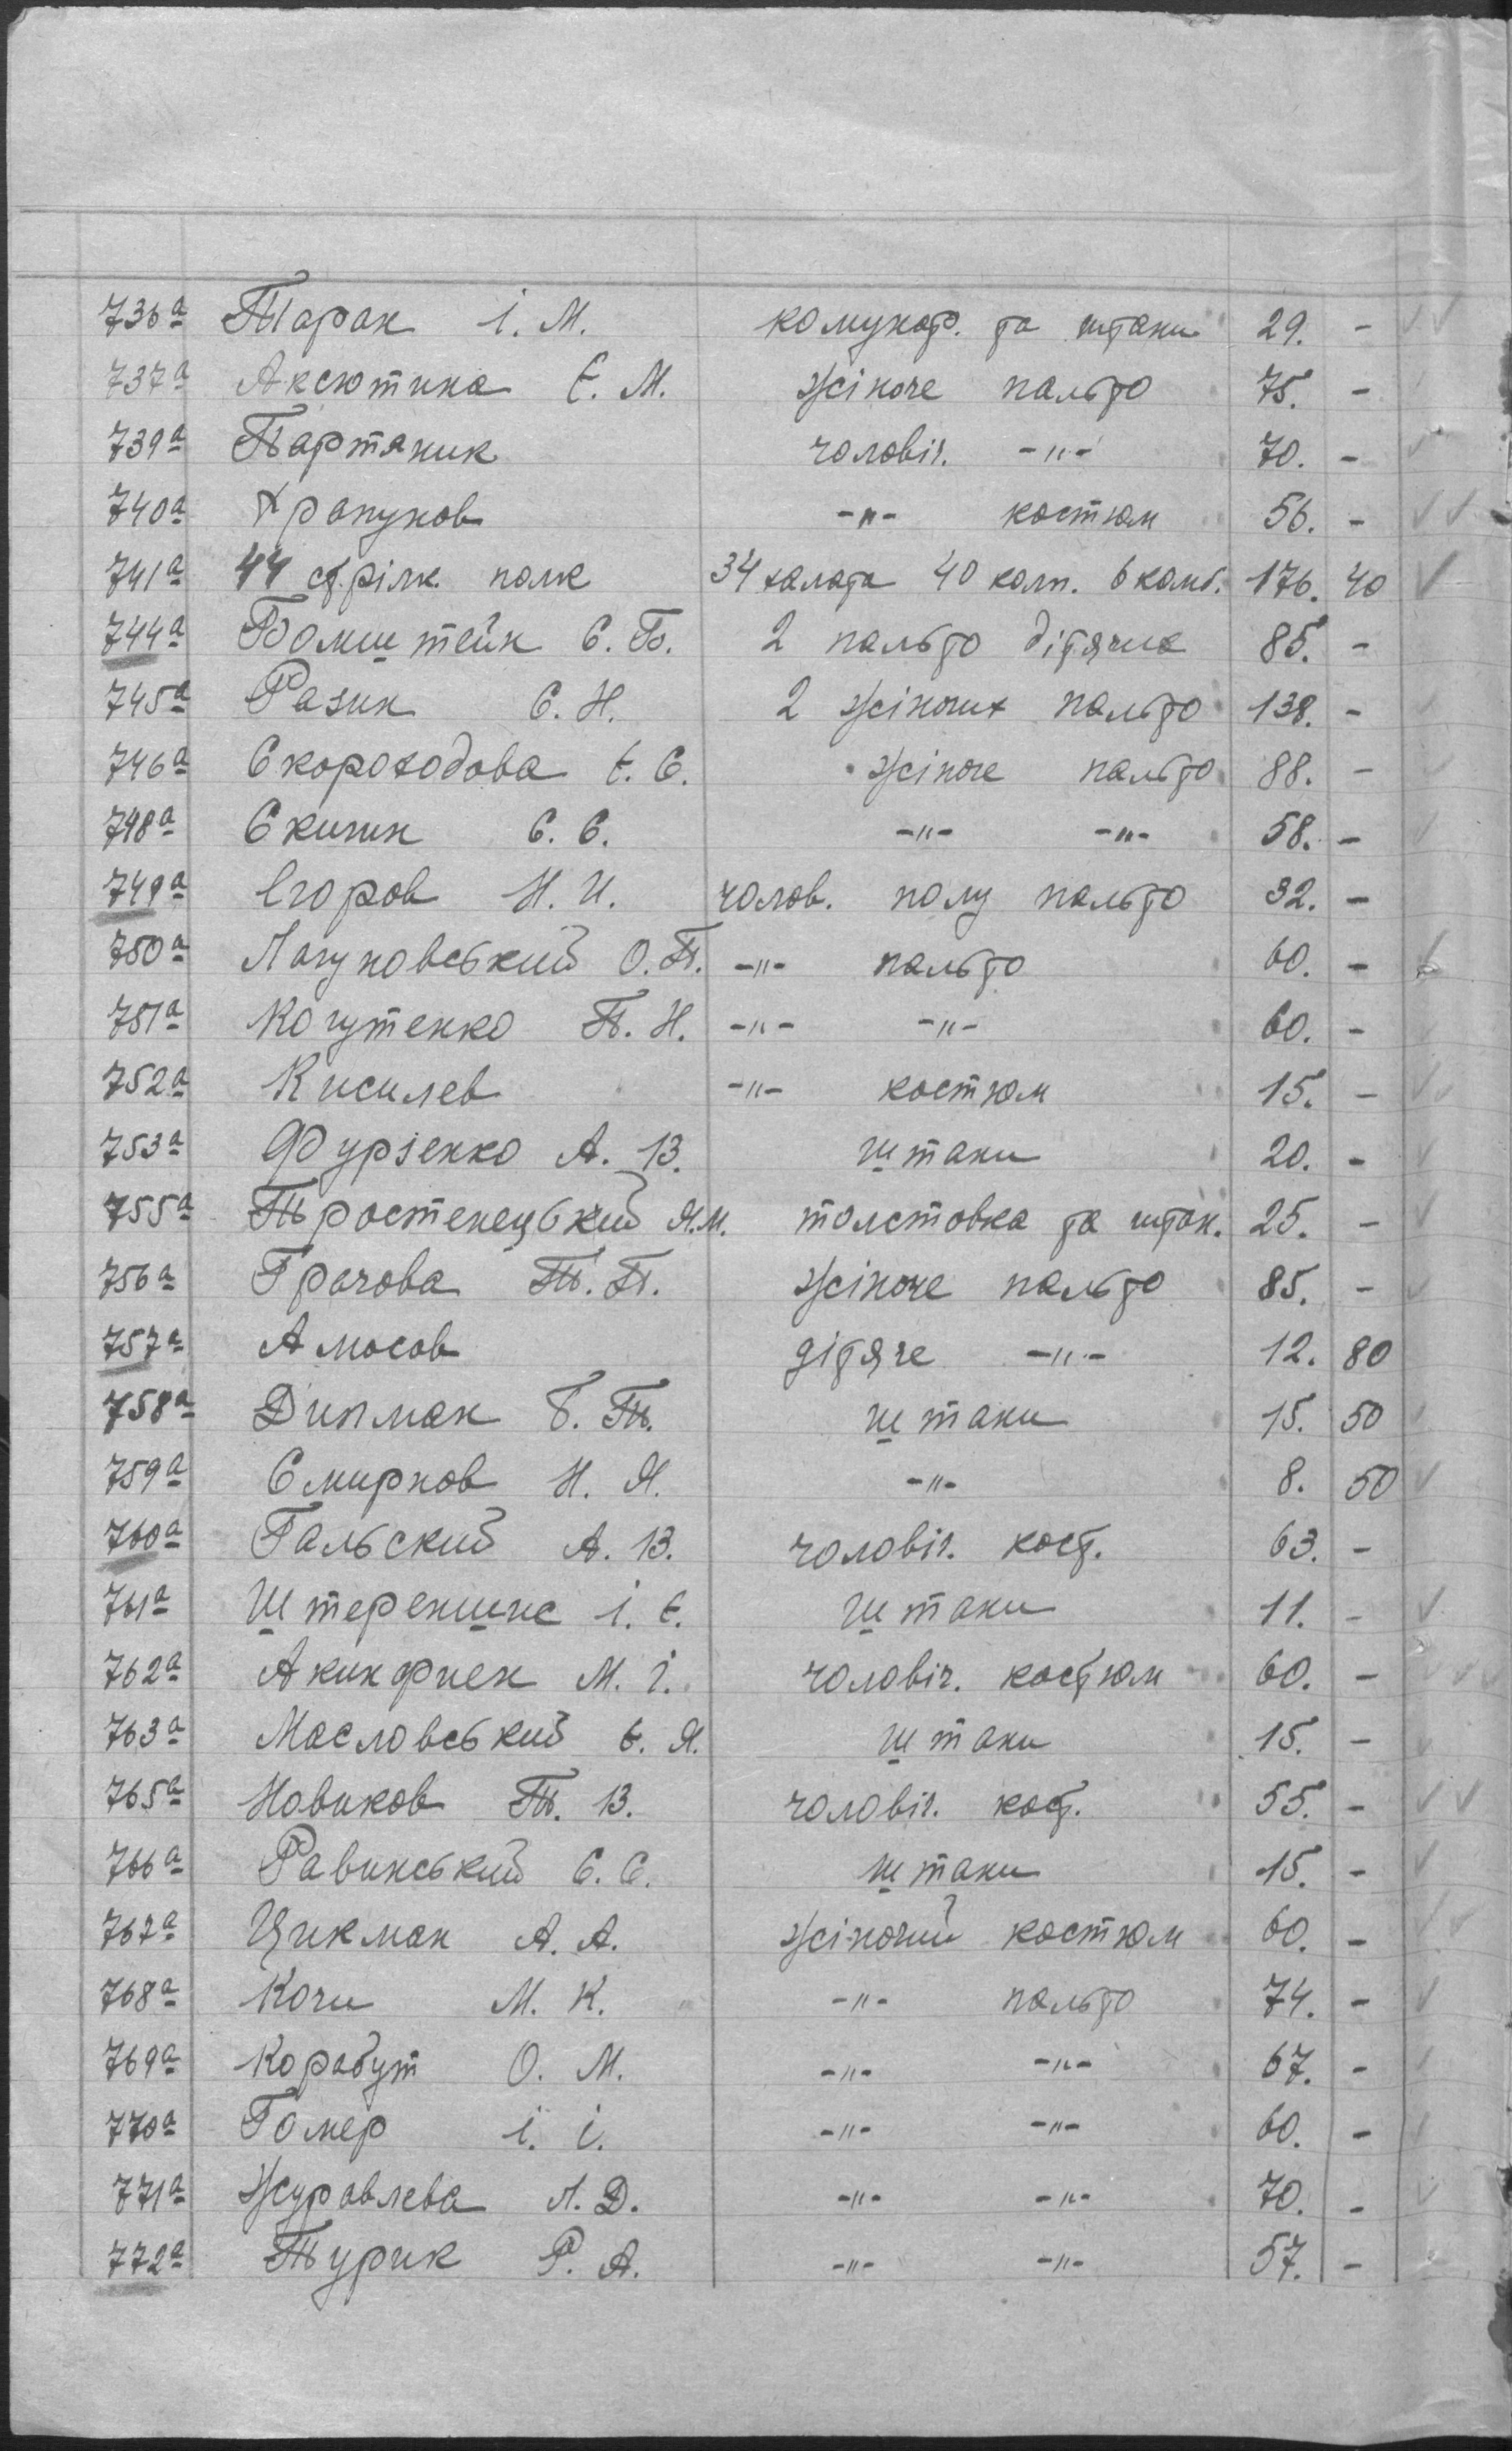 736а Таран І. М. комунар. та штани 29. -
737а Аксютина Є. М. жіноче пальто 75. -
739а Партяник чоловіч. -"- 70. -
740а Храпунов -"- костюм 56. -
741а 44 стрілк. полк 34 халата 40 колп. 6 комб. 176. 40
744а Бомштейн С. Б. 2 пальто дітячих 85. -
745а Разин С. Н. 2 жіночих пальто 138. -
746а Скороходова Є. С. жіноче пальто 88. -
748а С. С. -"- -"- 58. -
749а Єгоров Н. И. чолов. полу пальто 32. -
750а Лагуновський О. П. -"- пальто 60. -
751а Когутенко П. Н. -"- -"- 60. -
752а Кисилев -"- костюм 15. -
753а Фурзенко А. В. штани 20. -
755а Тростенецький Я. М. толстовка та штан. 25. -
756а Грачова Т. П. жіноче пальто 85. -
757а Амосов дітяче -"- 12. 80
758а Дипман Б. Т. штани 15. 50
759а Смирнов Н. Я. -"- 8. 50
760а Гальский А. В. чоловіч. кост. 63. -
761а І. Є. штани 11. -
762а М. І. чоловіч. костюм 60. -
763а Масловський Є. Я. штани 15. -
765а Новиков Т. В. чоловіч. кост. 55. -
766а Равинський С. С. штани 15. -
767а Цикман А. А. жіночий костюм 60. -
768а Кочи М. К. -"- пальто 74. -
769а Корабут О. М. -"- -"- 67. -
770а Гомер І. І. -"- -"- 60. -
771а Журавлева Л. Д. -"- -"- 70. -
772а Турик Р. А. -"- -"- 57. -